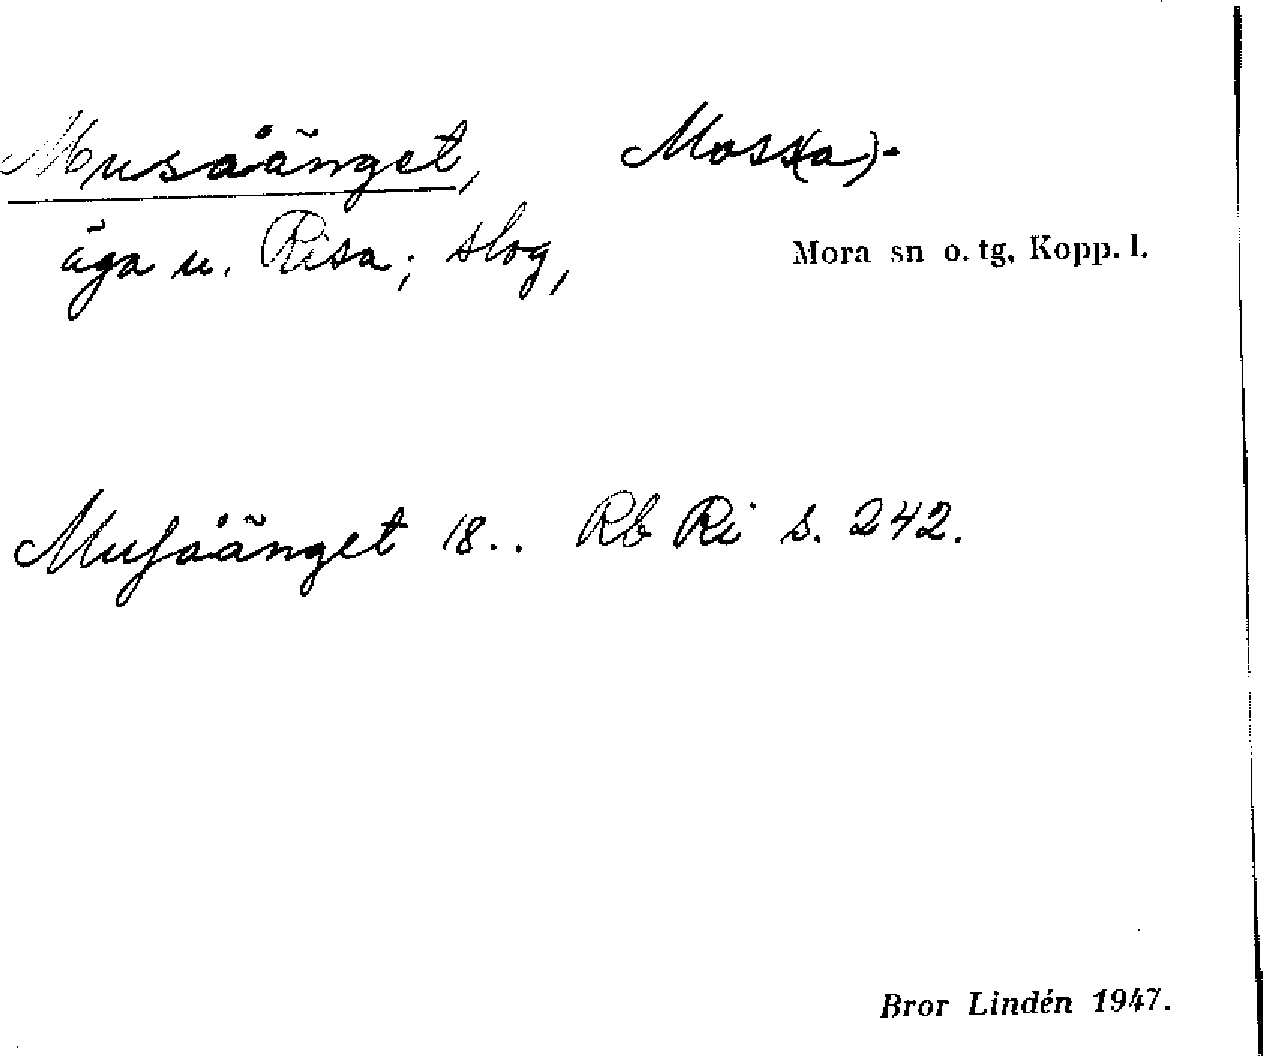 Musåänget, Moss(a)-
äga u. Risa; slog,
Mora sn o. tg, Kopp. l.
Musåänget 18.. Rb Ri s. 242.
Bror Lindén 1947.